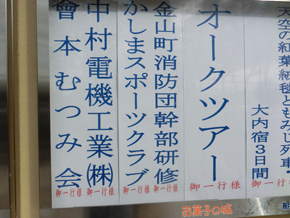 天空の紅葉絨毯ともみじ列車・
大内宿3日間
御一行様
オークツアー
御一行様
金山町消防団幹部研修
かしまスポーツクラブ
御一行様
中村電機工業㈱
御一行様
會本むつみ会
御一行様
お菓子の城